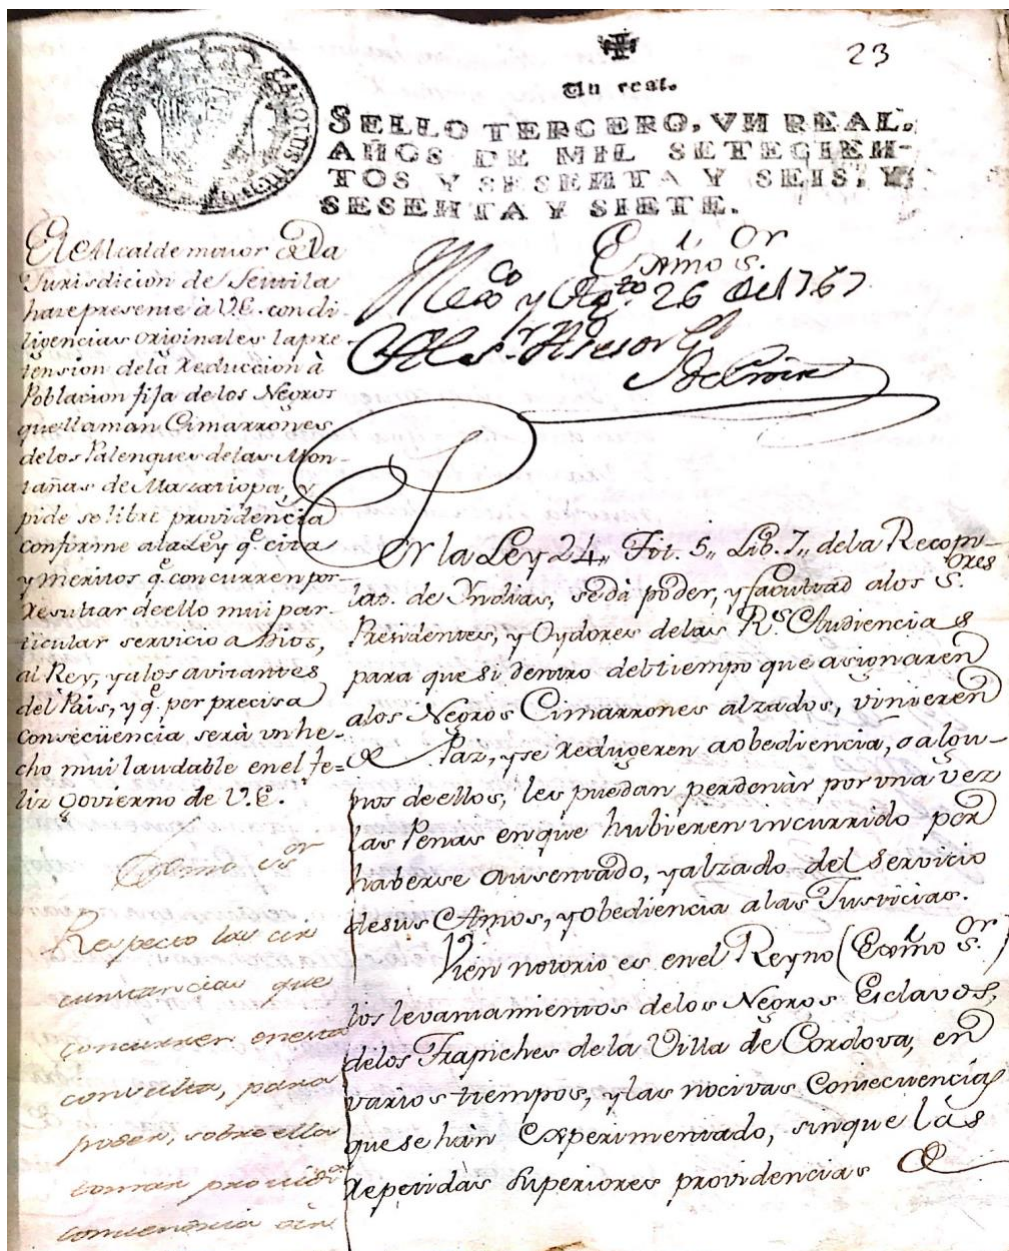 23
Un real.
SELLO TERCERO, VN REAL,
AÑOS DE MIL SETECIEN-
TOS Y SESENTA Y SEIS, Y
SESENTA Y SIETE.
CAROLUS III
El Alcalde mayor de la
Jurisdicion de Teutila
hace presente à V.E. con di-
ligencias originales la pre-
tension de la Reduccion à
Poblacion fija de los Negros
que llaman Cimarrones
de los Palenques de las Mon-
tañas de Mazatiopa, y
pide se libre providencia
conforme a la Ley q.e cita
y meritos q.e concurren por
resultar de ello mui par-
ticular servicio a Dios,
al Rey, y a los avitantes
del Pais, y q.e por precisa
consecüencia serà vn he-
cho mui laudable en el fe-
liz Govierno de V.E.
Exmo S.or
Respecto las cir
cunstancias que
concurren en esta
consulta, para
poder, sobre ella
tomar provid.a
combeniente sin
Ex.mo S.or
Mex.co y Ag.to 26 de 1767
Al S.r Asesor G.l
De Croix
Por la Ley 24,, Tit. 5,, Lib. 7,, de la Recopi-
lac. de Yndias, se dà poder, y facultad a los S.ores
Presidentes, y Oydores de las R.s Audiencias
para que si dentro del tiempo que asignaren
a los Negros Cimarrones alzados, vinieren
de Paz, y se redugeren a obediencia, o algu-
nos de ellos, les puedan perdonàr por una vez
las Penas en que hubieren incurrido por
haberse ausentado, y alzado del Servicio
de sus Amos, y obediencia a las Justicias.
Vien notorio es en el Reyno (Ex.mo S.or)
los levantamientos de los Negros Esclavos,
de los Trapiches de la Villa de Cordova, en
varios tiempos, y las nocivas Consecuencias
que se hàn Experimentado, sin que las
repetidas Superiores providencias de